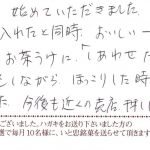 始めていただきました
入れたと同時、おいしい一
お茶うけに、「しあわせた
をしながら ほっこりした時
た。今後も近くの売店
ございました。ハガキをお送り下さいました方の
選で毎月10名様に、いと忠銘菓を送らせて頂きます